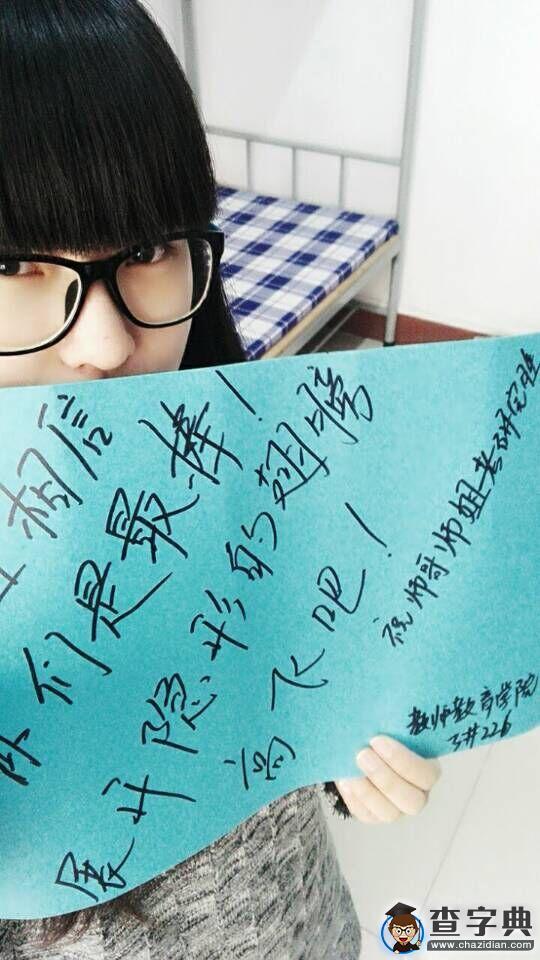 相信
们是最棒！
展开隐形的翅膀
高飞吧！
祝师哥师姐考研完胜
教师教育学院
3#226
查字典
www.chazidian.com